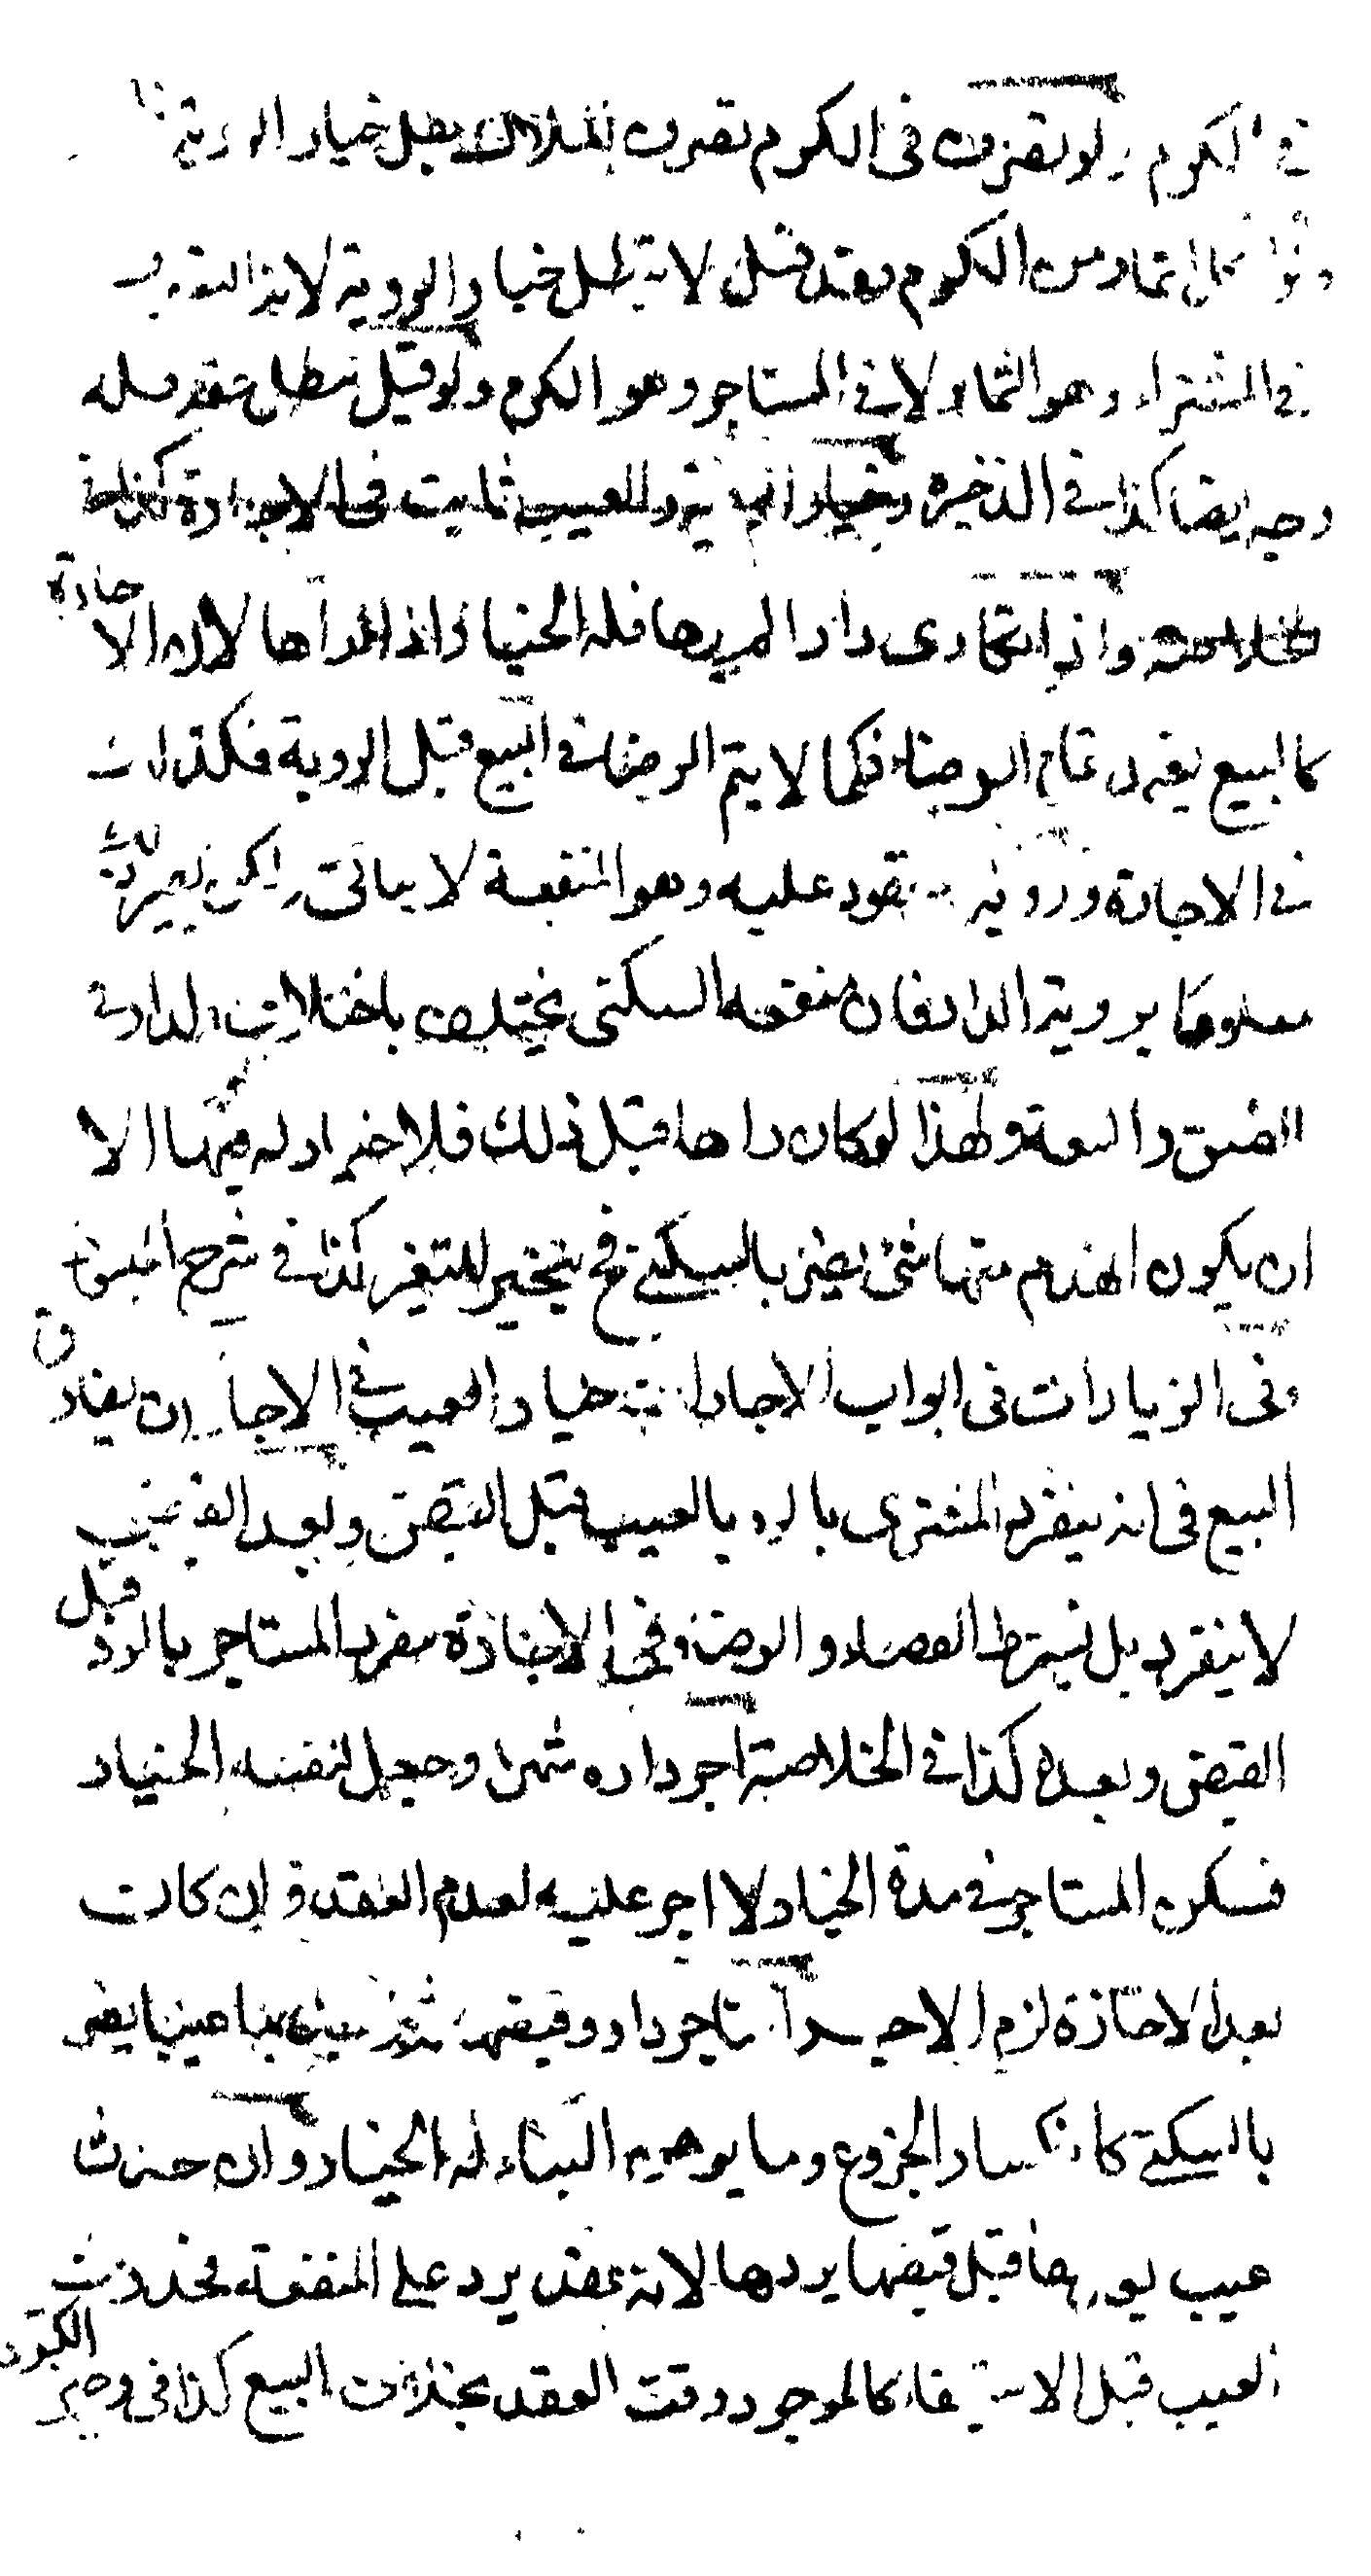 في الكرم ولو تصرف في الكرم تصرف الملاك بطل خيار الرؤية
ولو اكل ثمار من الكرم فقد قيل لا يبطل خيار الروية لانه التصرف
في المشتراء وهو الثمار لا في المستاجر وهو الكرم ولو قيل يبطل فقد قيل له
وجه ايضا كذا في الذخيرة وخيار ان يرد للعيب ثابت في الاجارة كذا في
الخلاصة واذا استاجر دارا لم يرها فله الخيار اذا راها لان الاجارة
كالبيع يعتمد تمام الرضاء فكما لا يتم الرضا في البيع قبل الروية فكذلك
في الاجارة ورؤية المعقود عليه وهو المنفعة لا يتاتى ولكن يصير ذلك
معلوما بروية الدار فان منفعة السكنى يختلف باختلاف الدار في
الضيق والسعة ولهذا لو كان راها قبل ذلك فلا خيار له فيها الا
ان يكون انهدم منها شئ يضر بالسكنى فح يتخير للتغير كذا في شرح المبسوط
وفي الزيادات في ابواب الاجارات خيار العيب في الاجارة يفارق
البيع في انه ينفرد المشترى بالرد بالعيب قبل القبض وبعد القبض
لا ينفرد بل يشترط القضاء والرضا وفي الاجارة ينفرد المستاجر بالرد قبل
القبض وبعده كذا في الخلاصة اجر داره شهرا وجعل لنفسه الخيار
فسكن المستاجر في مدة الخيار لا اجر عليه لعدم العقد وان كانت
بعد الاجازة لزم الاجر استاجر دار وقبضها ثم وجد بها عيبا يضر
بالسكنى كانكسار الجزوع وما يوهن البناء له الخيار وان حدث
عيب بها قبل قبضها يردها لانه عقد يرد على المنفعة فحدوث
العيب قبل الاستيفاء كالموجود وقت العقد بخلاف البيع كذا في وجيز الكردرى